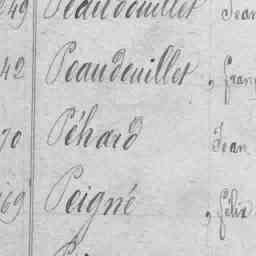 49 Peaudouillet Jean
42 Peaudeuillet, Fran
70 Péhard Jean
69 Peigné, Félix